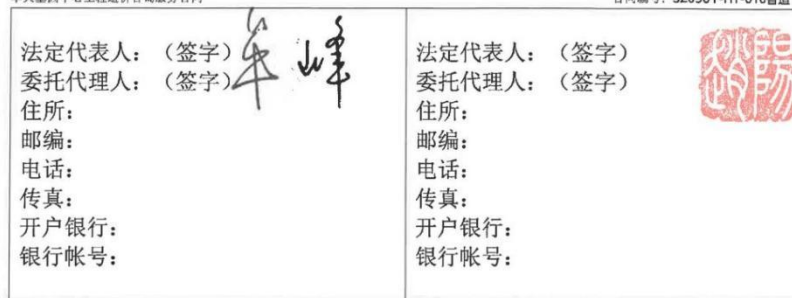 法定代表人：（签字）
委托代理人：（签字）
住所：
邮编：
电话：
传真：
开户银行：
银行帐号：
峰
法定代表人：（签字）
委托代理人：（签字）
住所：
邮编：
电话：
传真：
开户银行：
银行帐号：